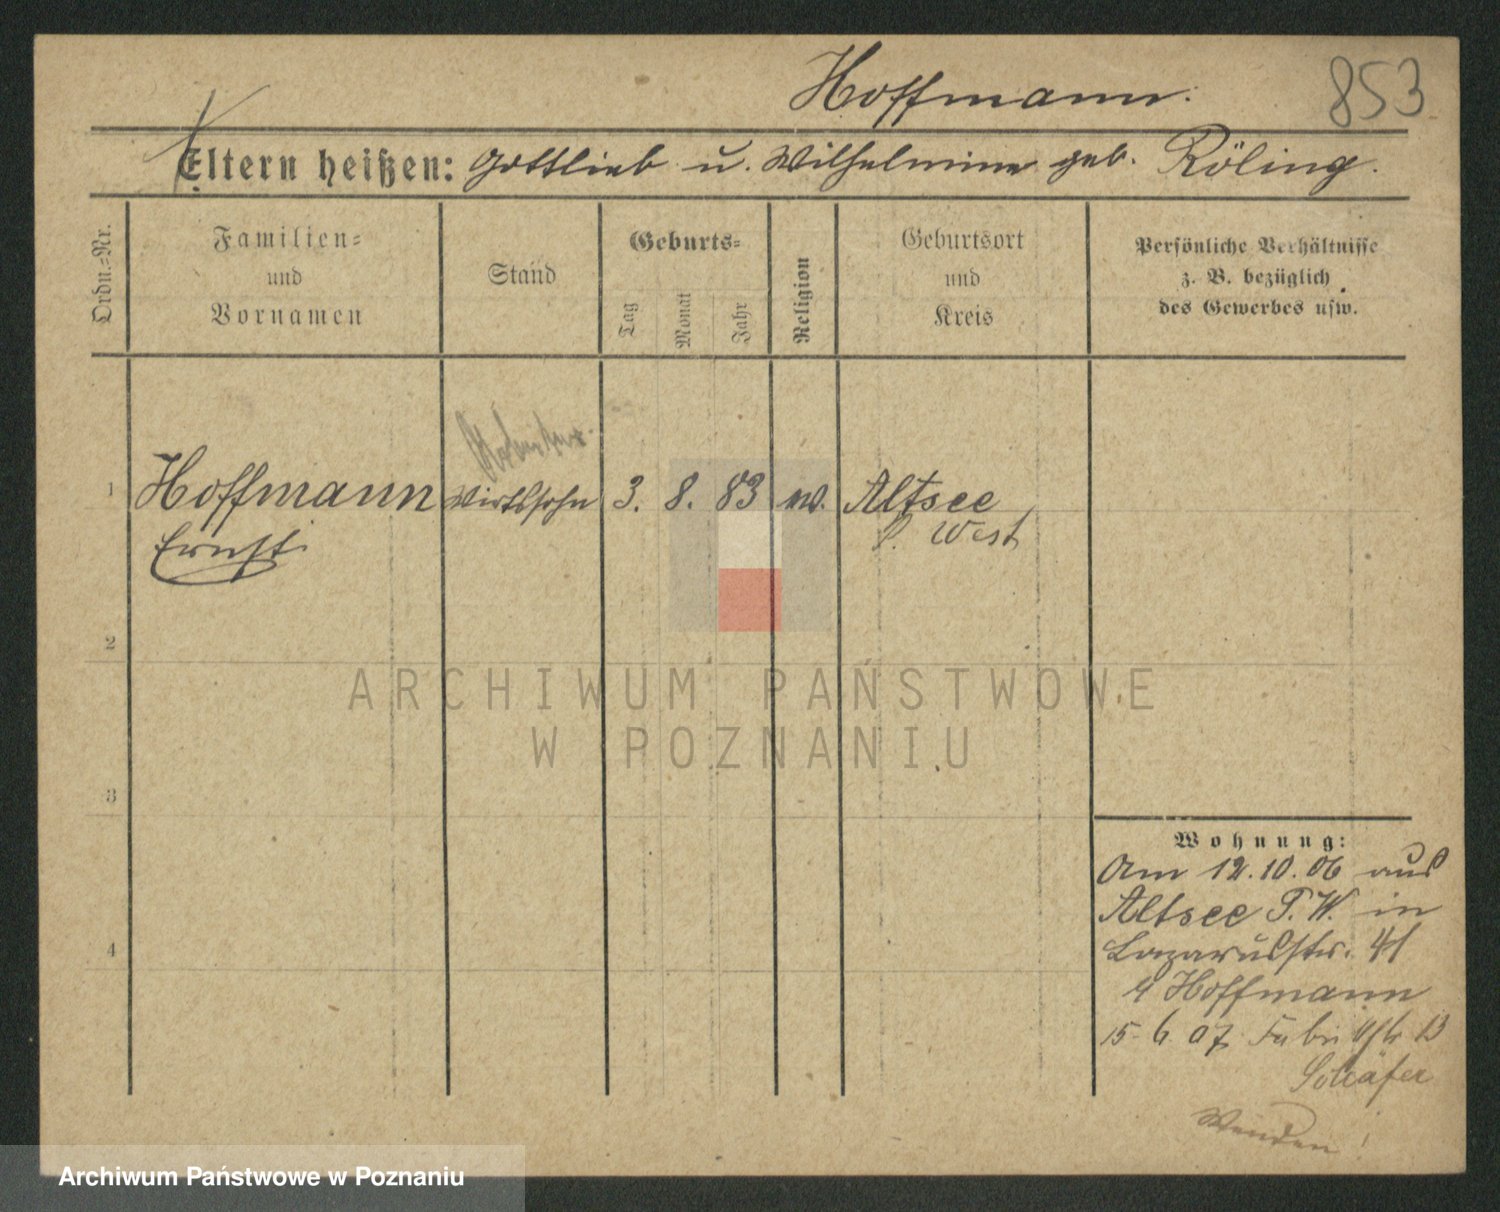 Hoffmann.
853
Eltern heißen: Gottlieb u. Wilhelmine geb. Röling.
Ordn.-Nr.
Familien-
und
Vornamen
Stand
Geburts-
Tag
Monat
Jahr
Religion
Geburtsort
und
Kreis
Persönliche Verhältnisse
z. B. bezüglich
des Gewerbes usw.
1 Hoffmann Wirthssohn 3. 8. 83 ev. Altsee
Ernst P. West
2
ARCHIWUM PAŃSTWOWE
W POZNANIU
3
Wohnung:
Am 12.10.06 aus
Altsee P. W. in
Lazarusstr. 41
Hoffmann
4
15. 6. 07 13
Schäfer
Wenden!
Archiwum Państwowe w Poznaniu